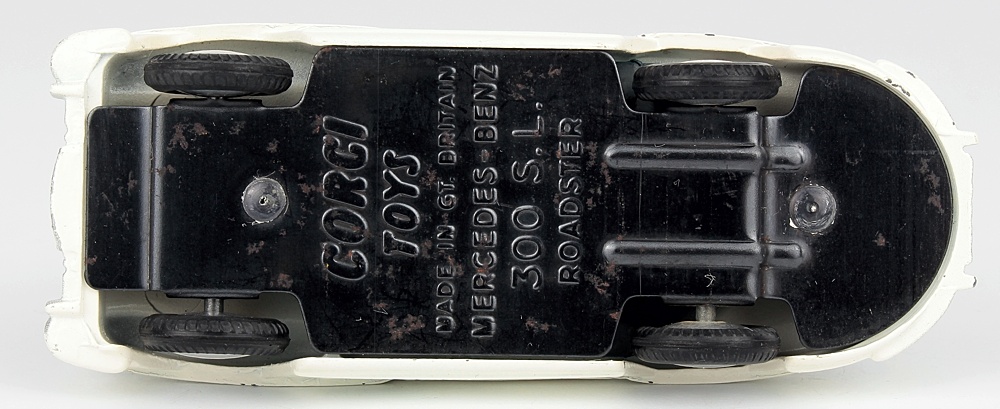 CORGI
TOYS
MADE IN GT. BRITAIN
MERCEDES-BENZ
300 S.L.
ROADSTER